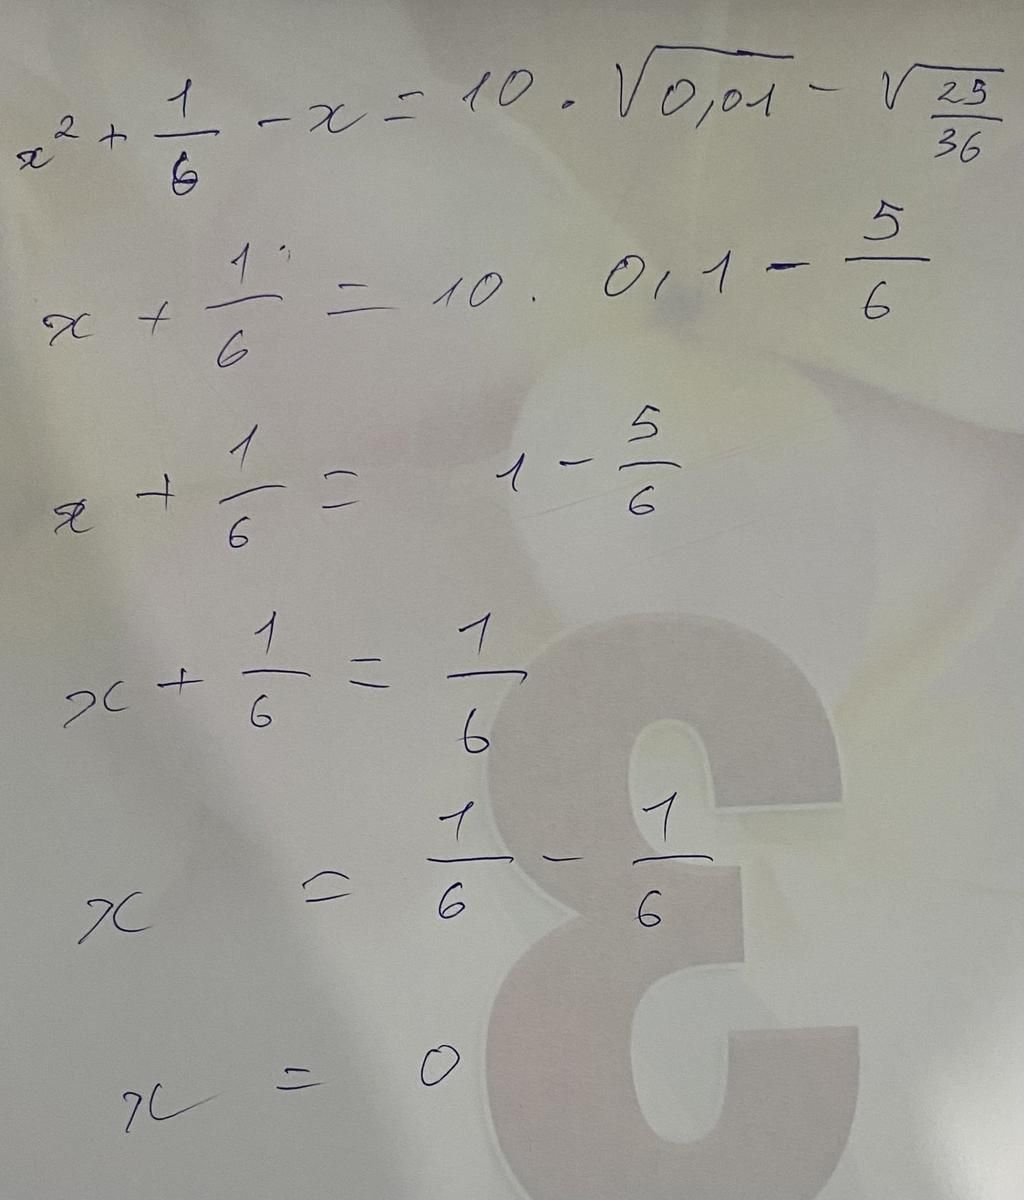 x² + 1/6 - x = 10 . √0,01 - √25/36
x + 1/6 = 10 . 0,1 - 5/6
x + 1/6 = 1 - 5/6
x + 1/6 = 1/6
x = 1/6 - 1/6
x = 0
3